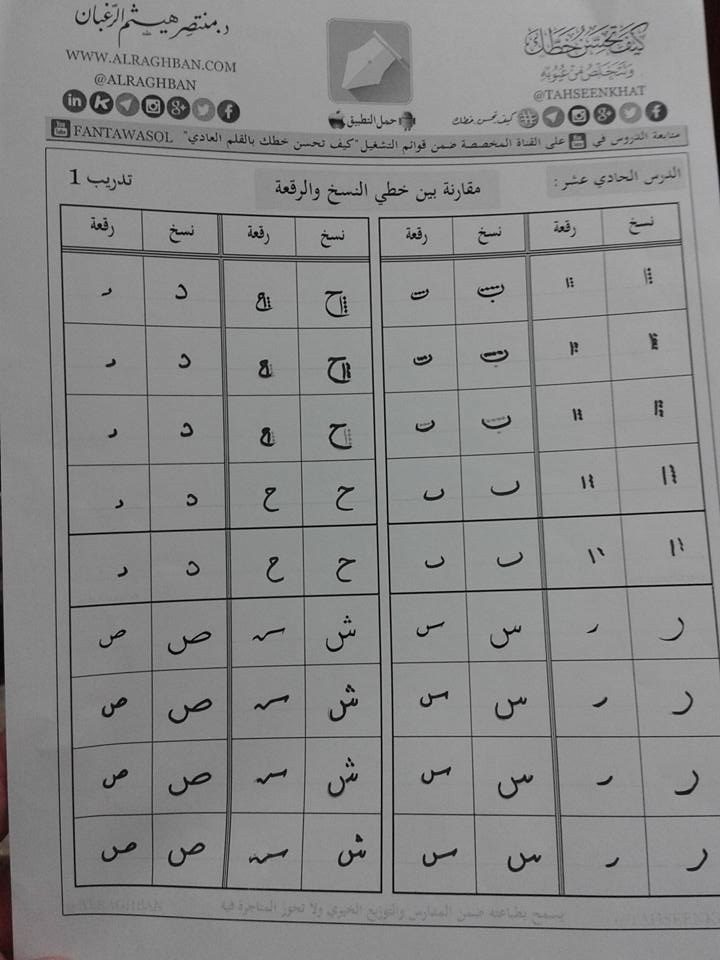 كيف تحسن خطك
وتتخلص من عيوبه
@TAHSEENKHAT
كيف تحسن خطك
احمل التطبيق
د. منتصر هيثم الرغبان
WWW.ALRAGHBAN.COM
@ALRAGHBAN
متابعة الدروس في You Tube على القناة المخصصة ضمن قوائم التشغيل "كيف تحسن خطك بالقلم العادي" FANTAWASOL You Tube
الدرس الحادي عشر : مقارنة بين خطي النسخ والرقعة تدريب 1
نسخ رقعة نسخ رقعة نسخ رقعة نسخ رقعة
ح ح د د
ح ح د د
ح ح د د
ا ا ٮ ٮ ح ح د د
ا ا ٮ ٮ ح ح د د
ر ر س س ش س ص ص
ر ر س س ش س ص ص
ر ر س س ش س ص ص
ر ر س س ش س ص ص
يسمح بطباعته ضمن المدارس والتوزيع الخيري ولا تجوز المتاجرة فيه
@TAHSEENKHAT
@ALRAGHBAN